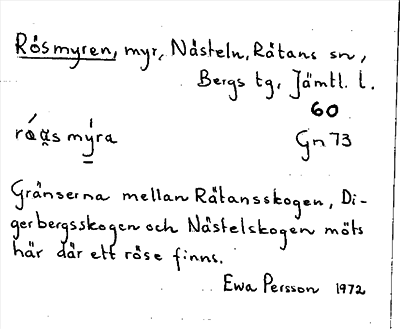 Rösmyren, myr, Nästeln, Rätans sn,
Bergs tg, Jämtl. l.
60
Gn 73
Gränserna mellan Rätansskogen, Di-
gerbergsskogen och Nästelskogen möts
här där ett röse finns.
Ewa Persson 1972